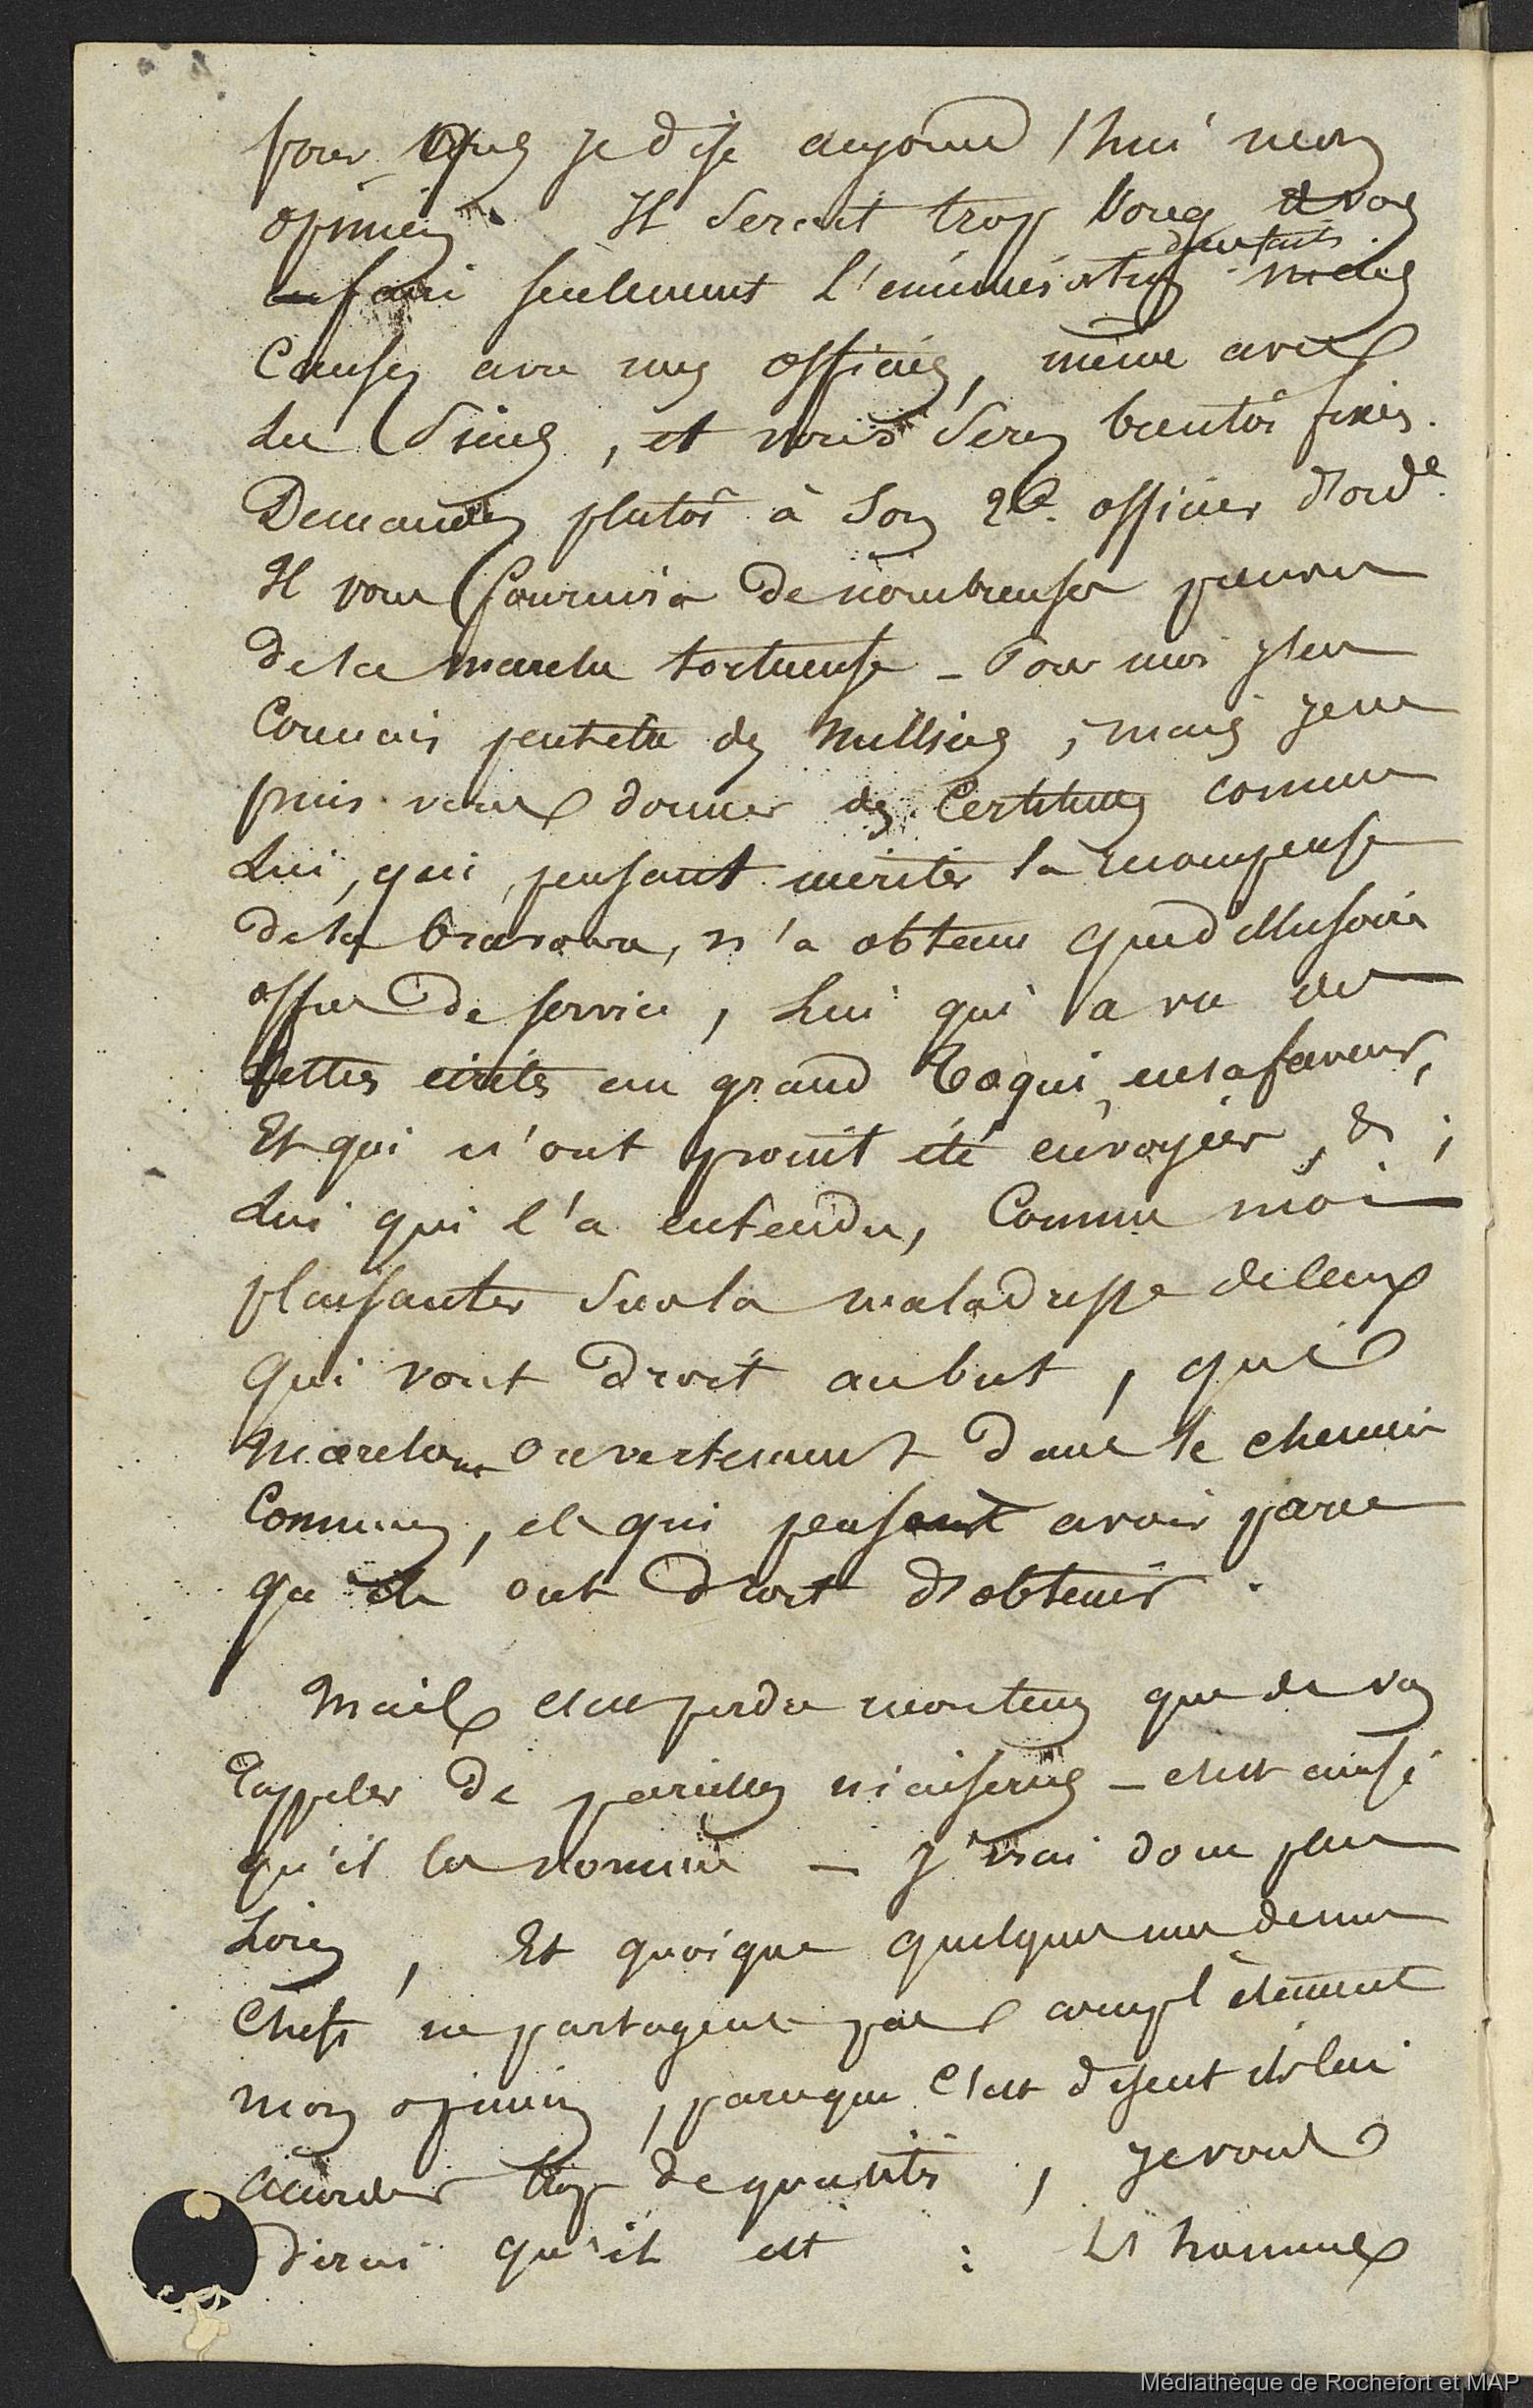 pour que je dise aujourd'hui mon
opinion. Il serait trop long de vous
en faire seulement l'énumération mais
des faits.
Causez avec nos officiers, même avec
les siens, et vous serez bientôt fixés.
Demandez plutôt à son 2e. officier d'ord.e
Il vous fournira de nombreuses preuves
de sa marche tortueuse _ Pour moi j'en
connais peutetre des milliers, mais je ne
puis vous donner des certitudes comme
lui, qui, pensant mériter la récompense
de sa bravoure, n'a obtenu que d'illusoires
offres de service, lui qui a vu des
lettres écrites au grand en sa faveur,
Et qui n'ont point été envoyées, & ;
lui qui l'a entendu, comme moi
plaisanter sur la maladresse de ceux
qui vont droit au but, qui
marchent ouvertement dans le chemin
commun, et qui pensent avoir parce
qu'ils ont droit d'obtenir.
Mais c'est perdre mon tems que de vous
rappeler de pareilles niaiseries _ c'est ainsi
qu'il les nomme _ J'irai donc plus
loin, Et quoique quelques uns de nos
chefs ne partagent pas complètement
mon opinion, parceque c'est disent ils lui
accorder trop de qualités, je vous
dirai qu'il est : L'homme
Médiathèque de Rochefort et MAP